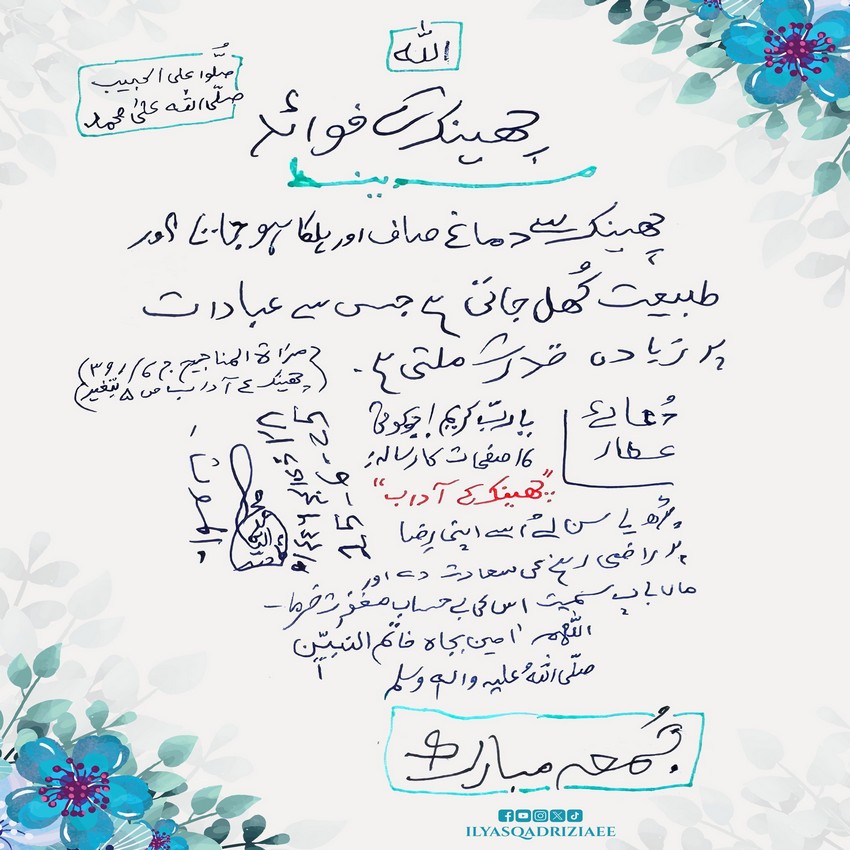 اللہ
صلُّوا علی الحبیب
صلّی اللہ علیٰ محمد
چھینک کے فوائد
مدینہ
چھینک سے دماغ صاف اور ہلکا ہو جاتا اور
طبیعت کُھل جاتی ہے جس سے عبادات
پر زیادہ قدرت ملتی ہے۔
(مراۃ المناجیح ج 6/ 391
چھینک کے آداب ص 8 بتغیر)
دُعائے
عطار
یا ربِّ کریم! جو کوئی
16 صفحات کا رسالہ:
"چھینک کے آداب"
پڑھ یا سن لے اُسے اپنی رِضا
پر راضی رہنے کی سعادت دے اور
ماں باپ سمیت اس کی بے حساب مغفرت فرما۔
اٰمین بجاہ خاتم النبیّن
صلّی اللہُ علیہ واٰلہٖ وسلم
جُمعہ مبارک
ILYASQADRIZIAEE